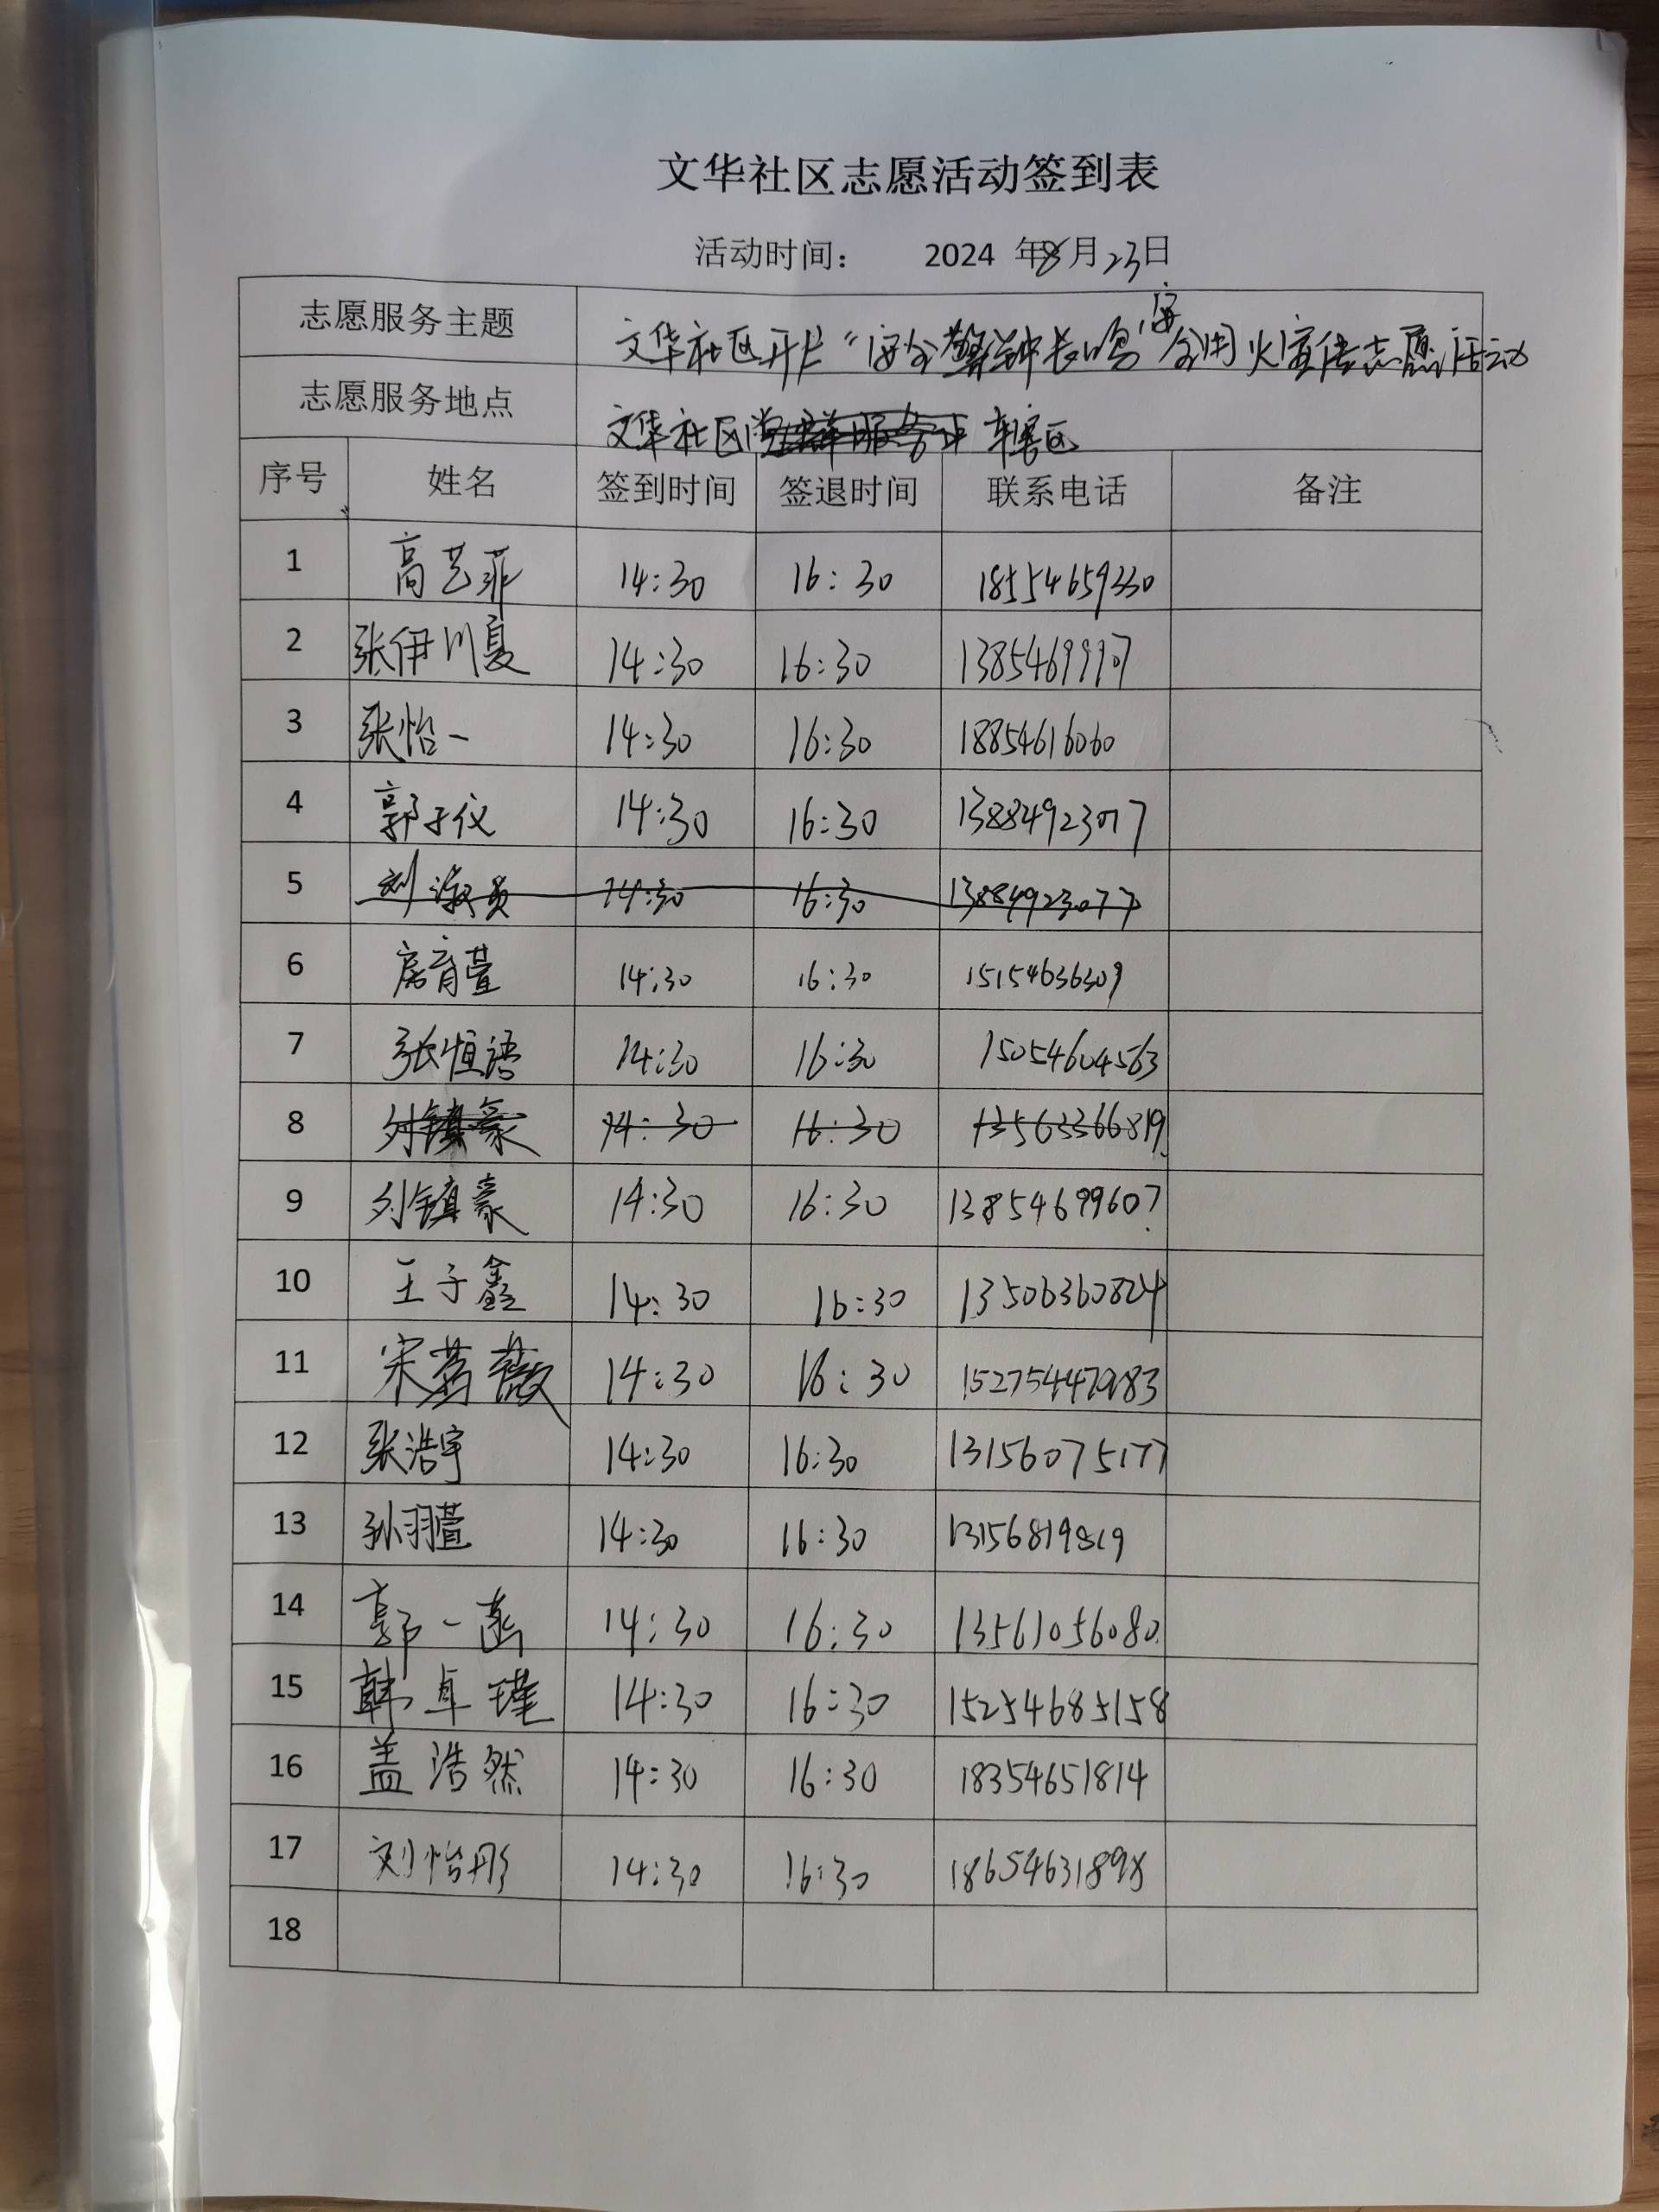 文华社区志愿活动签到表
活动时间： 2024 年8月23日
志愿服务主题 文华社区开展“安全警钟长鸣，安全用火宣传志愿活动
志愿服务地点 文华社区党群服务 辖区
序号 姓名 签到时间 签退时间 联系电话 备注
1 高艺菲 14:30 16:30 18554659330
2 张伊川夏 14:30 16:30 13854699907
3 张怡一 14:30 16:30 18854616060
4 郭子仪 14:30 16:30 13884923077
5 刘淑贞 14:30 16:30 13884923077
6 房育萱 14:30 16:30 15154636309
7 张恒语 14:30 16:30 15054604563
8 刘镇豪 14:30 16:30 13563366819
9 刘镇豪 14:30 16:30 13854699607
10 王子鑫 14:30 16:30 13506360824
11 宋茗薇 14:30 16:30 15275447983
12 张浩宇 14:30 16:30 13156075177
13 孙羽萱 14:30 16:30 13156819819
14 郭一菡 14:30 16:30 13561056080
15 韩卓瑾 14:30 16:30 15254685158
16 盖浩然 14:30 16:30 18354651814
17 刘怡彤 14:30 16:30 18654631898
18